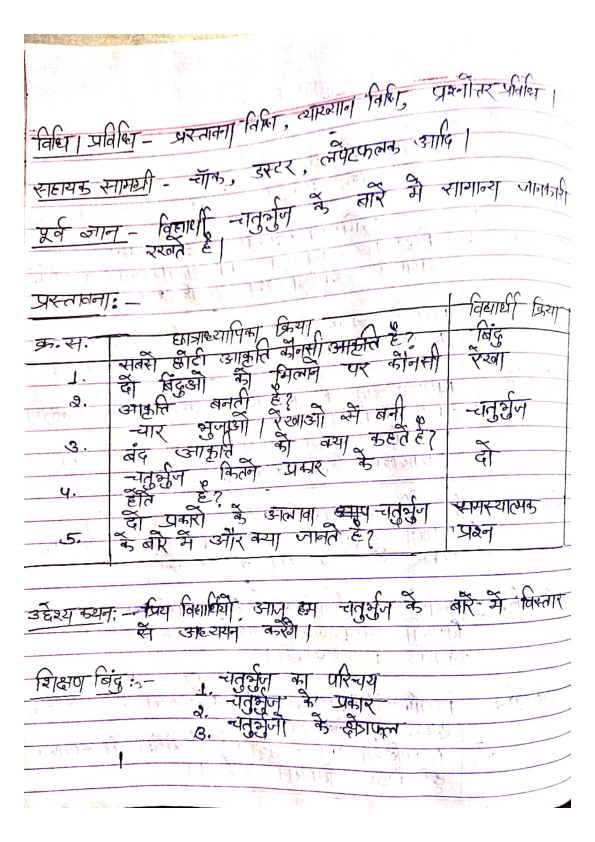 विधि। प्रविधि - प्रस्तावना विधि, व्याख्यान विधि, प्रश्नोत्तर प्रविधि।
सहायक सामग्री - चॉक, डस्टर, लपेटफलक आदि।
पूर्व ज्ञान - विद्यार्थी चतुर्भुज के बारे मे सामान्य जानकारी
रखते है।
प्रस्तावना:-
क्र.स. छात्राध्यापिका क्रिया विद्यार्थी क्रिया
1. सबसे छोटी आकृति कौनसी आकृति है? बिंदु
2. दो बिंदुओ को मिलाने पर कौनसी रेखा
आकृति बनती है?
3. चार भुजाओ। रेखाओ से बनी चतुर्भुज
बंद आकृति को क्या कहते है?
4. चतुर्भुज कितने प्रकार के दो
होते है?
5. दो प्रकारो के अलावा आप चतुर्भुज समस्यात्मक
के बारे मे और क्या जानते है? प्रश्न
उद्देश्य कथन:- प्रिय विद्यार्थियो आज हम चतुर्भुज के बारे मे विस्तार
से अध्ययन करेंगे।
शिक्षण बिंदु:-
1. चतुर्भुज का परिचय
2. चतुर्भुज के प्रकार
3. चतुर्भुजो के क्षेत्रफल